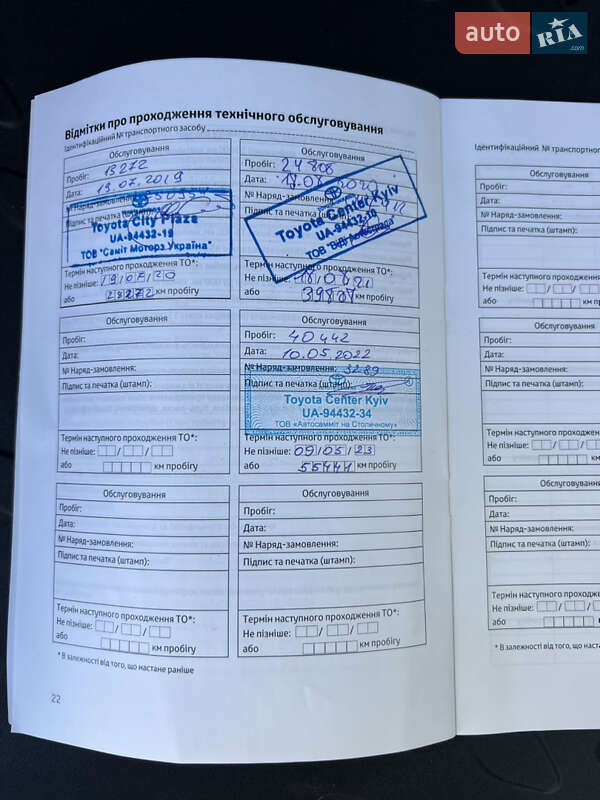 auto RIA.com
Відмітки про проходження технічного обслуговування
Ідентифікаційний № транспортного засобу
Обслуговування
Пробіг: 13272
Дата: 19.07.2019
№ Наряд-замовлення:
Підпис та печатка
Toyota City Plaza
UA-94432-19
ТОВ "Саміт Моторз Україна"
Термін наступного проходження ТО*:
Не пізніше: 19/07/20
або 28272 км пробігу
Обслуговування
Пробіг: 24808
Дата:
№ Наряд-замовлення:
Підпис та печатка
Toyota Center Kyiv
UA-94432-19
ТОВ
Термін наступного проходження ТО*:
Не пізніше: 18/06/21
або 39808 км пробігу
Обслуговування
Пробіг:
Дата:
№ Наряд-замовлення:
Підпис та печатка (штамп):
Термін наступного проходження ТО*:
Не пізніше: / /
або км пробігу
Обслуговування
Пробіг: 40442
Дата: 10.05.2022
№ Наряд-замовлення: 3289
Підпис та печатка (штамп):
Toyota Center Kyiv
UA-94432-34
ТОВ «Автосамміт на Столичному»
Термін наступного проходження ТО*:
Не пізніше: 09/05/23
або 55444 км пробігу
Обслуговування
Пробіг:
Дата:
№ Наряд-замовлення:
Підпис та печатка (штамп):
Термін наступного проходження ТО*:
Не пізніше: / /
або км пробігу
Обслуговування
Пробіг:
Дата:
№ Наряд-замовлення:
Підпис та печатка (штамп):
Термін наступного проходження ТО*:
Не пізніше: / /
або км пробігу
* В залежності від того, що настане раніше
22
Ідентифікаційний № транспортного
Обслуговування
Пробіг:
Дата:
№ Наряд-замовлення:
Підпис та печатка (штамп):
Термін наступного проходження
Не пізніше: / /
або км
Обслуговування
Пробіг:
Дата:
№ Наряд-замовлення:
Підпис та печатка (штамп):
Термін наступного проходження
Не пізніше: / /
або
Обслуговування
Пробіг:
Дата:
№ Наряд-замовлення:
Підпис та печатка (штамп):
Термін наступного проходження
Не пізніше: / /
або
* В залежності від того, що настане